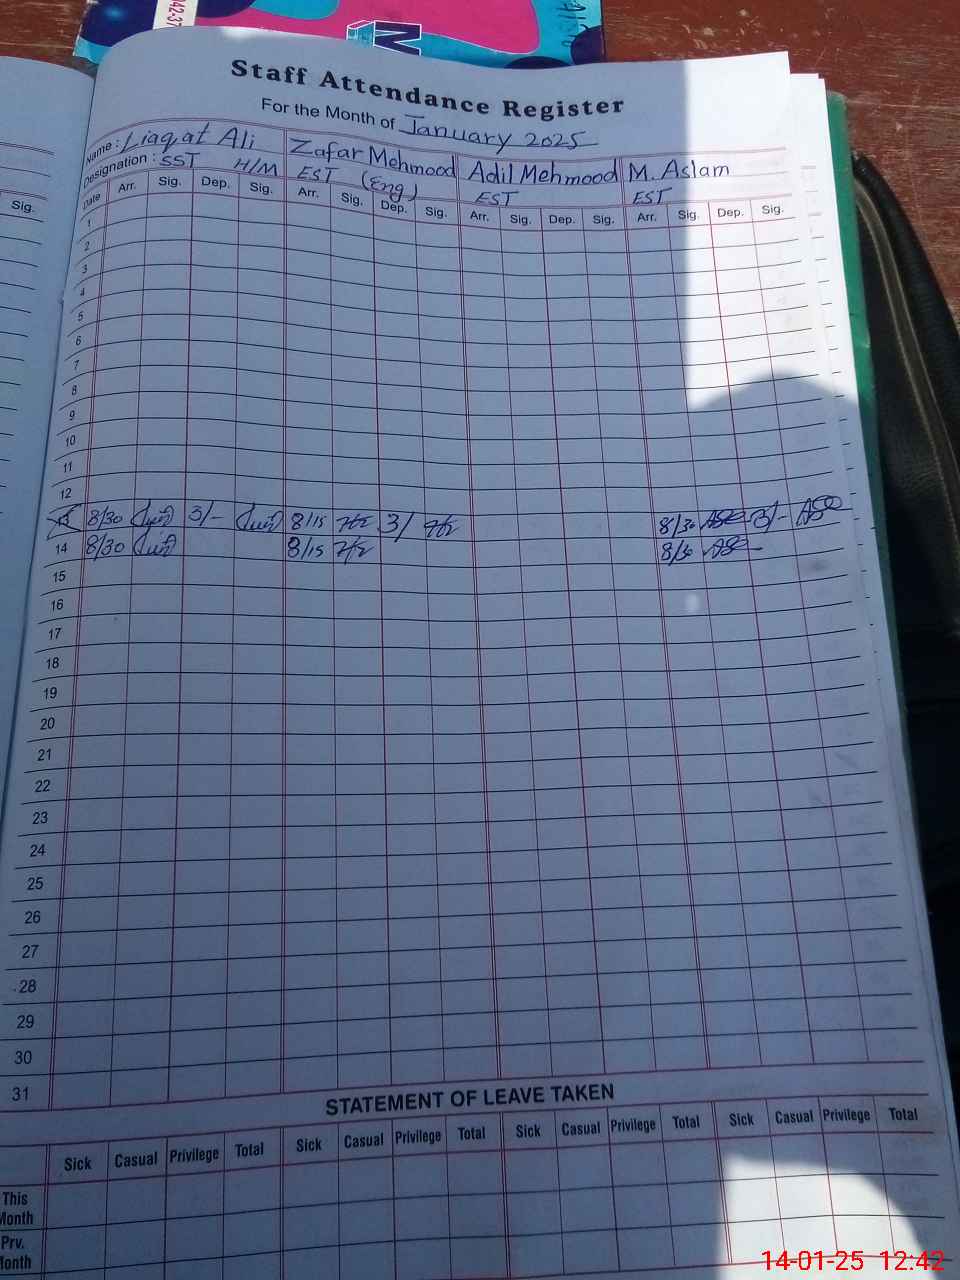 Staff Attendance Register
For the Month of January 2025
Name : Liaqat Ali Zafar Mehmood Adil Mehmood M. Aslam
Designation : SST H/M EST (Eng) EST EST
Date Arr. Sig. Dep. Sig. Arr. Sig. Dep. Sig. Arr. Sig. Dep. Sig. Arr. Sig. Dep. Sig.
Sig.
1
2
3
4
5
6
7
8
9
10
11
12
13 8/30 3/- 8/15 3/ 8/30 3/-
14 8/30 8/15 8/30
15
16
17
18
19
20
21
22
23
24
25
26
27
28
29
30
31
STATEMENT OF LEAVE TAKEN
Sick Casual Privilege Total Sick Casual Privilege Total Sick Casual Privilege Total Sick Casual Privilege Total
This Month
Prv. Month
14-01-25 12:42